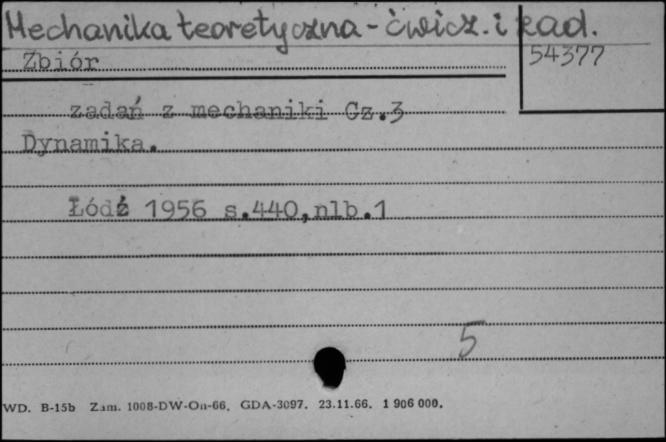 Mechanika teoretyczna - ćwicz. i zad.
Zbiór
54377
zadań z mechaniki Cz.3
Dynamika.
Łódź 1956 s.440,nlb.1
5
WD. B-15b Zam. 1008-DW-On-66. GDA-3097. 23.11.66. 1 906 000.